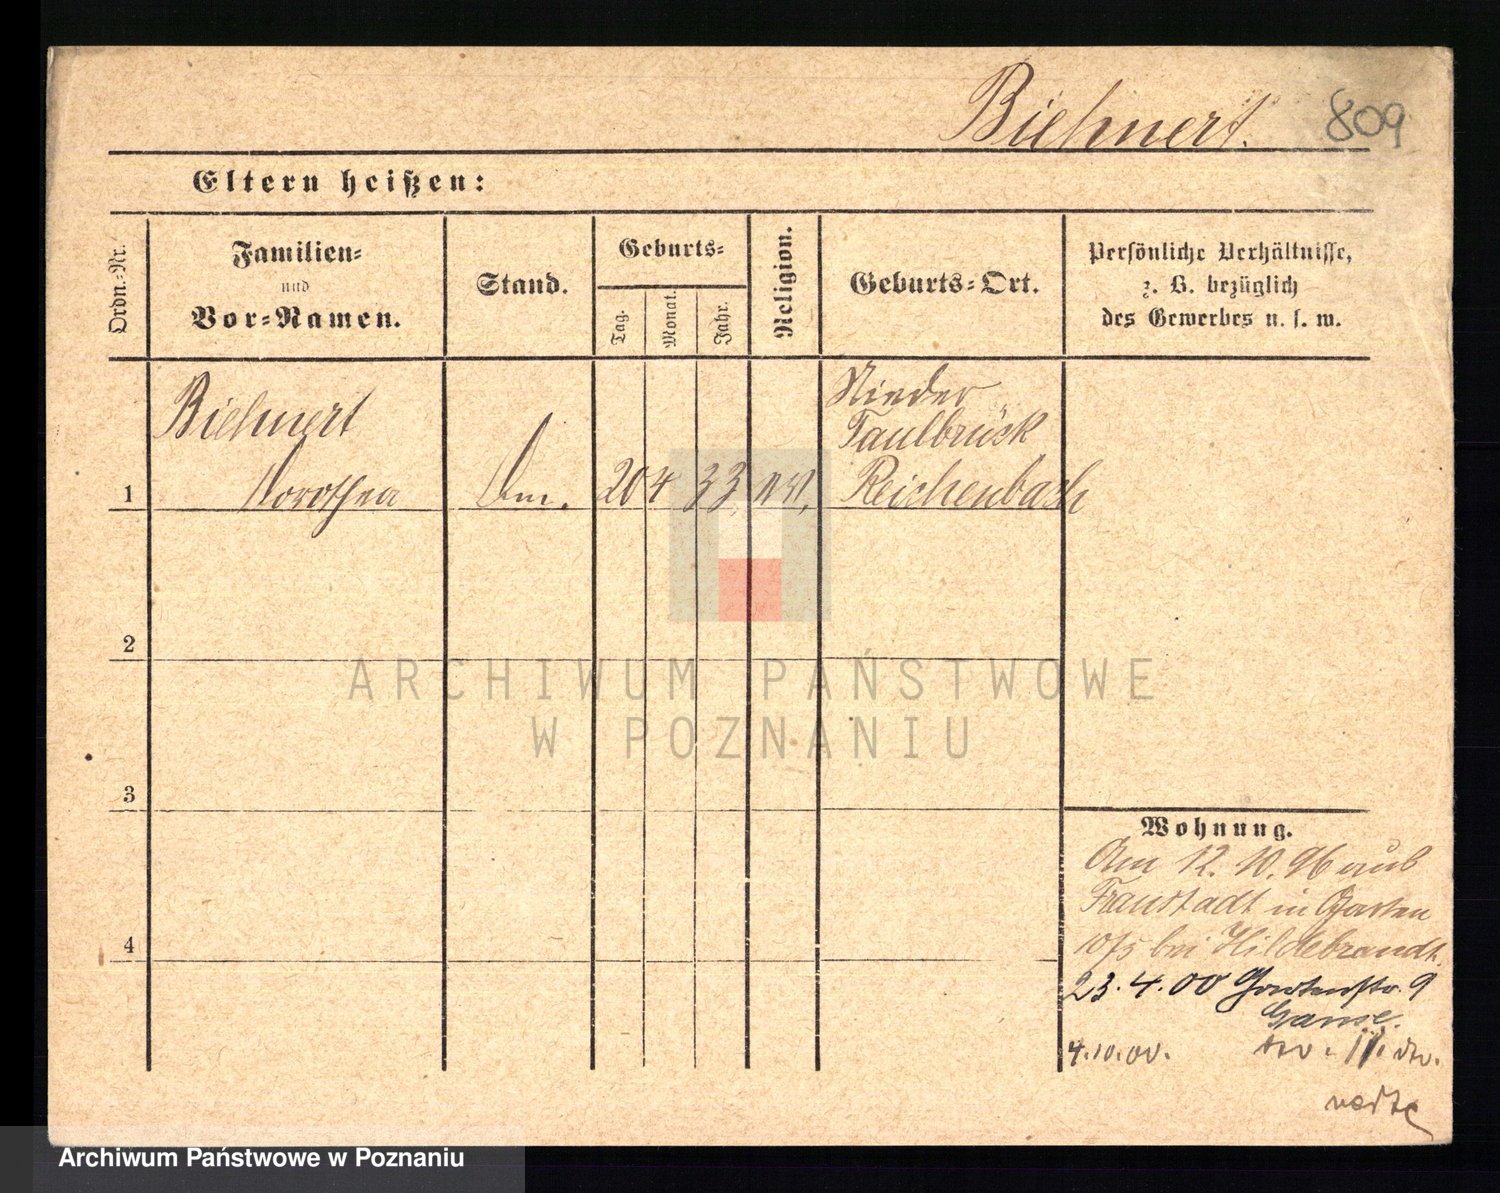 Biehnert. 809
Eltern heißen:
Ordn.-Nr.
Familien-
und
Vor-Namen.
Stand.
Geburts-
Tag.
Monat.
Jahr.
Religion.
Geburts-Ort.
Persönliche Verhältnisse,
z. B. bezüglich
des Gewerbes u. s. w.
Biehnert
Nieder
Faulbrück
1 Dorothea 20 4 33. ev. Reichenbach
2
ARCHIWUM PAŃSTWOWE
W POZNANIU
3
Wohnung.
Am 12. 10. 96 aus
Fraustadt in Garten
10/5 bei Hildebrandt.
4
23. 4. 00 Gartenstr. 9
4.10.00.
Archiwum Państwowe w Poznaniu